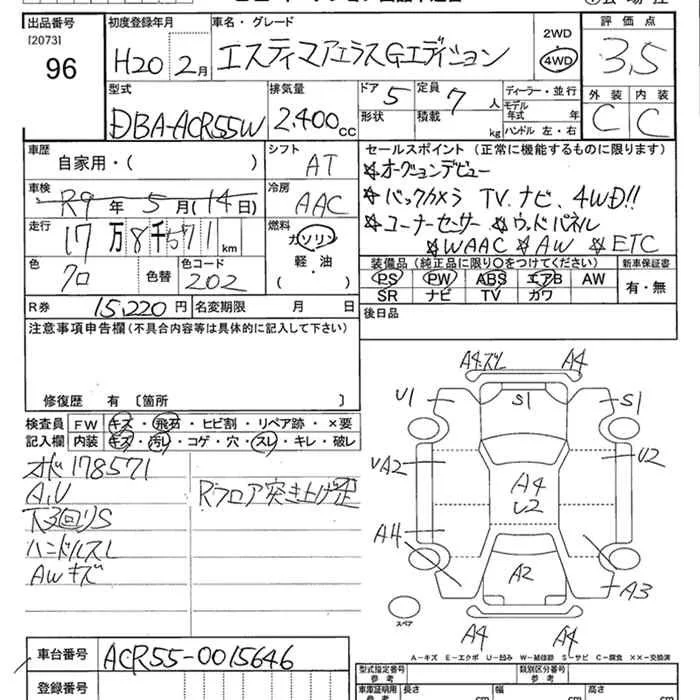 出品番号 初度登録年月 車名・グレード 評価点
[2073] 96 H20 2月 エスティマアエラスGエディション 2WD 4WD 3.5
外装 内装
C C
型式 排気量 ドア 5 定員 7人 ディーラー・並行
DBA-ACR55W 2.400cc 形状 積載 kg モデル年式 年
ハンドル 左・右
車歴 シフト セールスポイント (正常に機能するものに限ります)
自家用・( ) AT ☆オークションデビュー
車検 冷房 ☆バックカメラ TV.ナビ、4WD!!
R9年5月(14日) AAC ☆コーナーセンサー ☆ウッドパネル
走行 燃料 ☆WAAC ☆AW ☆ETC
17万8千571km ガソリン
軽・油
( )
色 クロ 色替 色コード 202
装備品 (純正品に限り○をつけてください) 新車保証書
PS PW ABS エアB AW 有・無
SR ナビ TV カワ
R券 15,220円 名変期限 月 日
後日品
注意事項申告欄(不具合内容等は具体的に記入して下さい)
修復歴 有 〔箇所 〕
検査員 FW キズ・飛石・ヒビ割・リペア跡・×要
記入欄 内装 キズ・汚レ・コゲ・穴・スレ・キレ・破レ
オド178571
A,U Rフロア突き上げ
下回りS
ハンドルスレ
AWキズ
A4.ズレ A4
U1 S1 S1
UA2 U2
A4
U2
A4
A2 A3
A4 A4
スペア
A-キズ E-エクボ U-凹み W-補修跡 S-サビ C-腐食 ××-交換済
車台番号 ACR55-0015646
登録番号
型式指定番号 参考 類別区分番号 参考
車庫証明用 参考 長さ cm 幅 cm 高さ cm